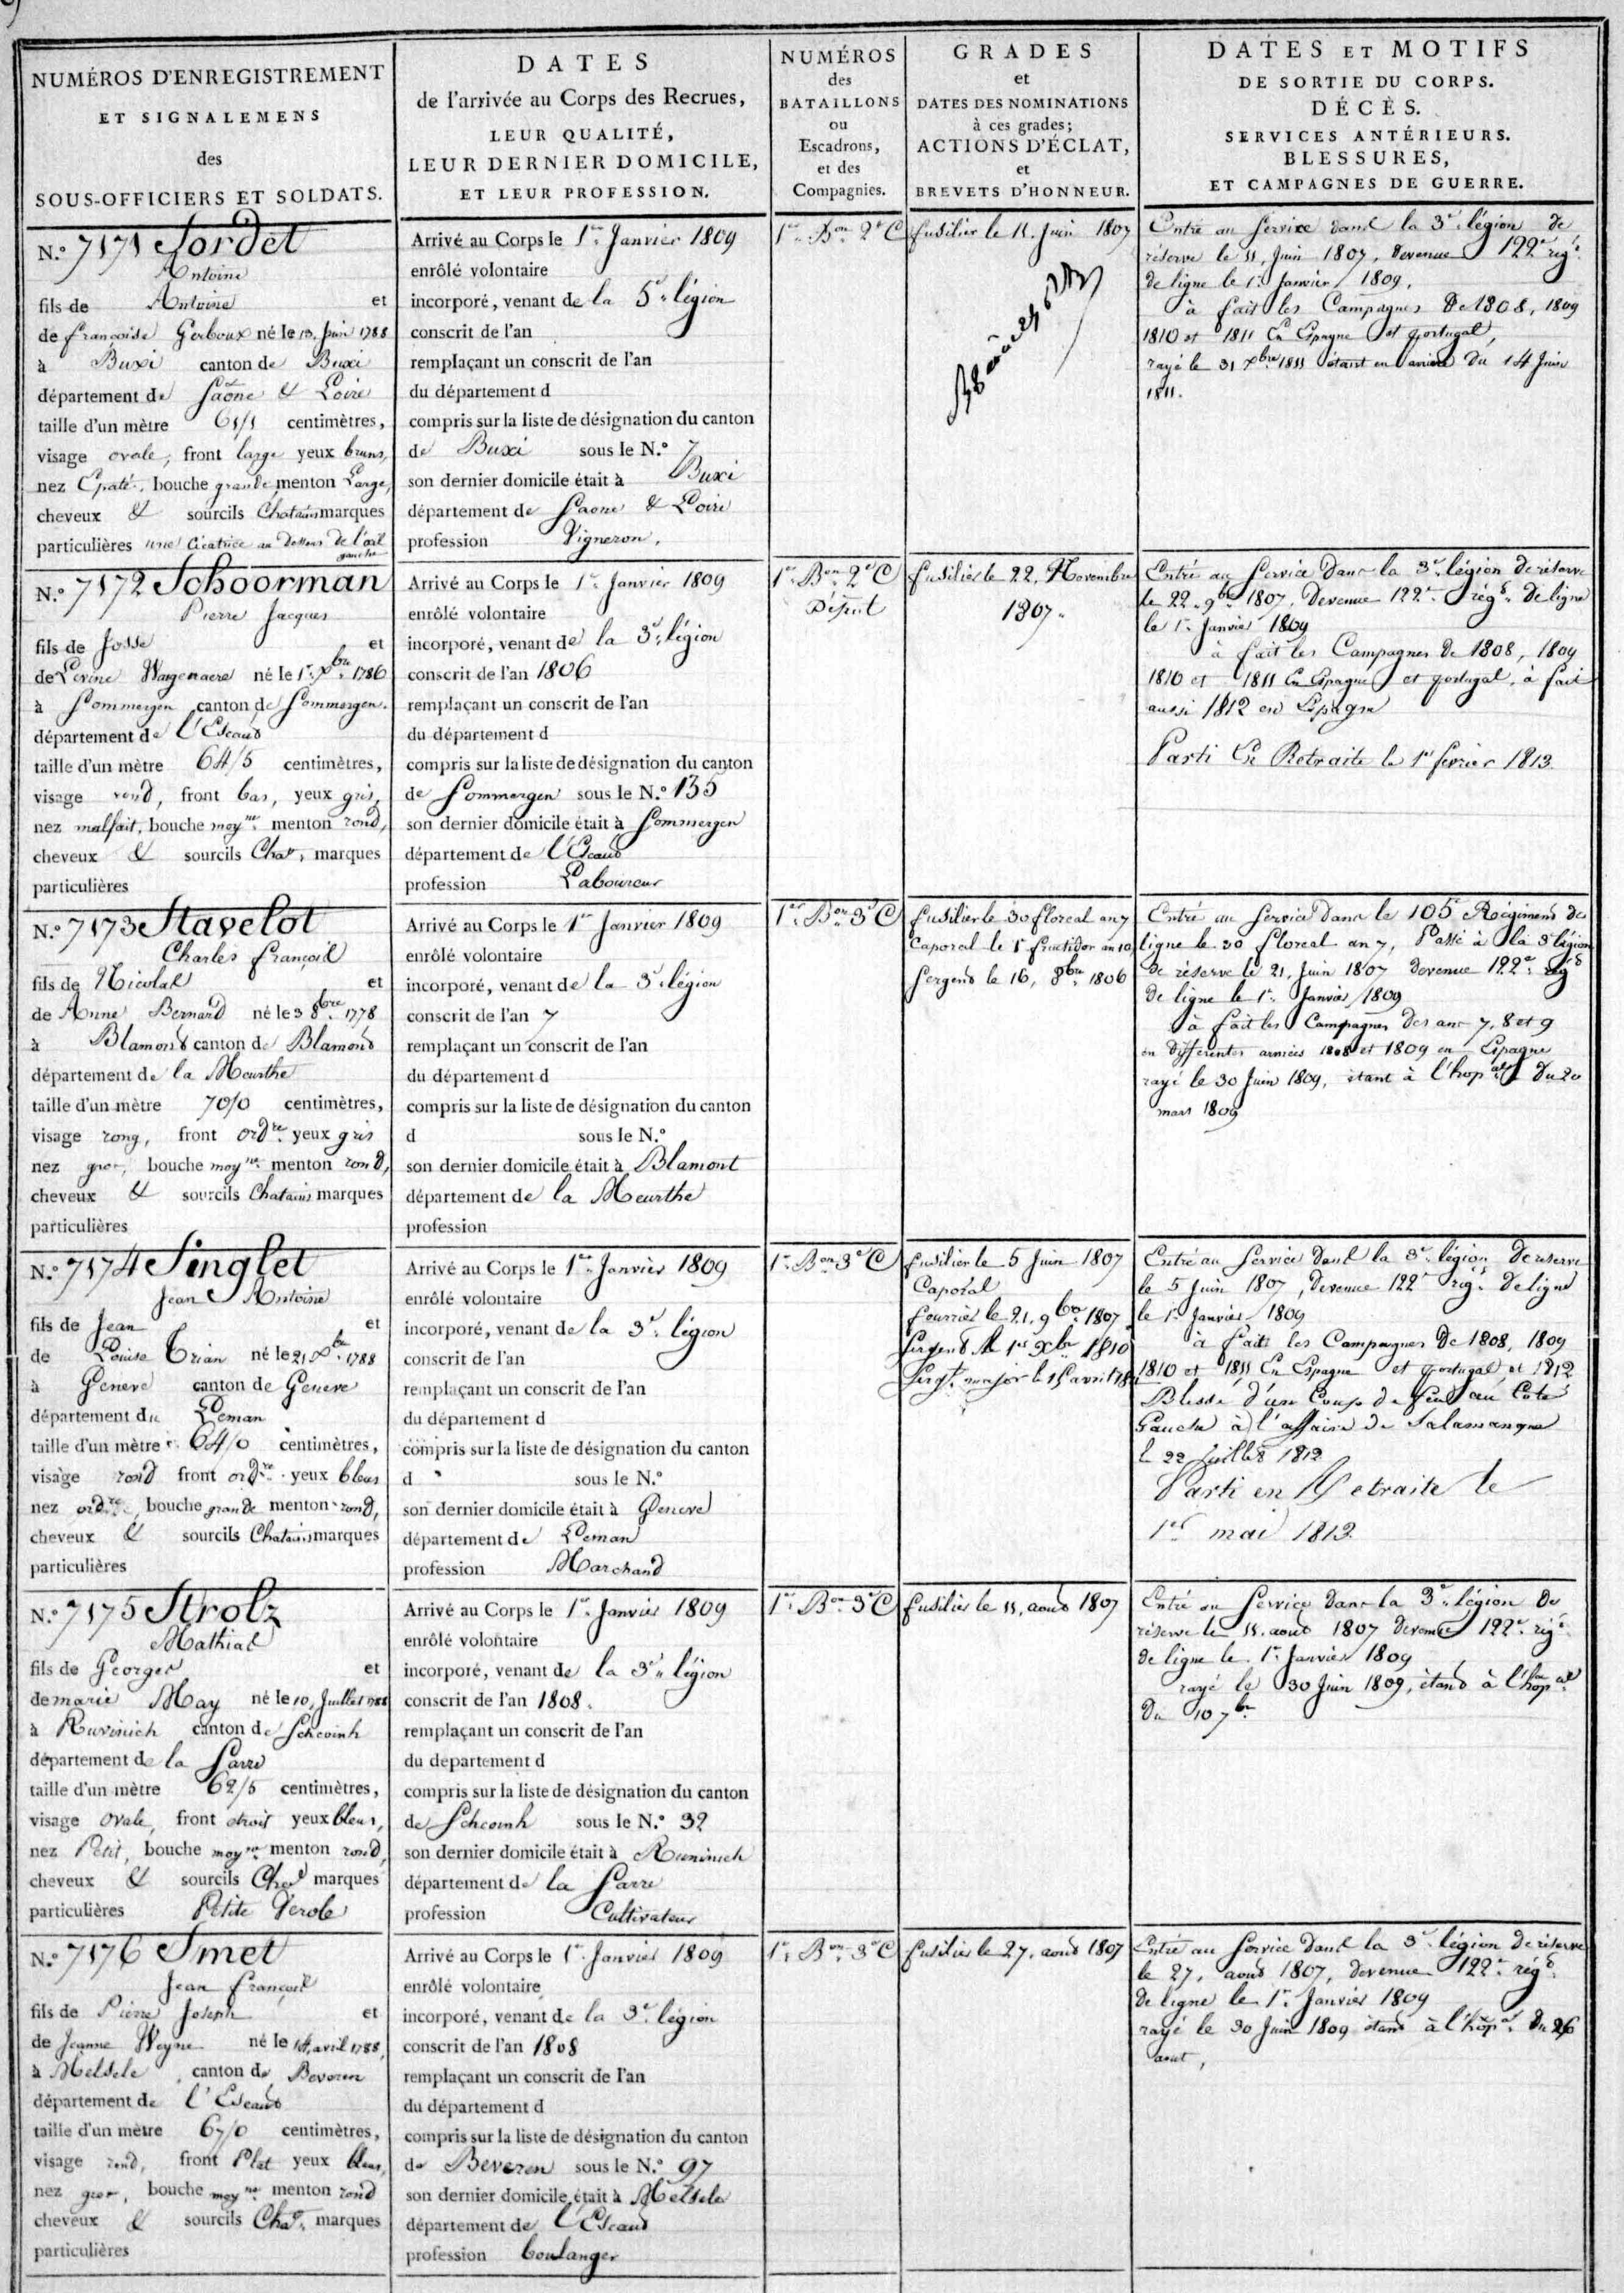 NUMÉROS D'ENREGISTREMENT
ET SIGNALEMENS
des
SOUS-OFFICIERS ET SOLDATS.
DATES
de l'arrivée au Corps des Recrues,
LEUR QUALITÉ,
LEUR DERNIER DOMICILE,
ET LEUR PROFESSION.
NUMÉROS
des
BATAILLONS
ou
Escadrons,
et des
Compagnies.
GRADES
et
DATES DES NOMINATIONS
à ces grades;
ACTIONS D'ÉCLAT,
et
BREVETS D'HONNEUR.
DATES ET MOTIFS
DE SORTIE DU CORPS.
DÉCÈS.
SERVICES ANTÉRIEURS.
BLESSURES,
ET CAMPAGNES DE GUERRE.
N.o 7171 Sordet
Antoine
fils de Antoine et
de françoise Gerboux né le 13, Juin 1788
à Buxi canton de Buxi
département de Saône & Loire
taille d'un mètre 65/5 centimètres,
visage ovale, front large yeux bruns,
nez Epaté, bouche grande, menton Large,
cheveux & sourcils Chatains marques
particulières une Cicatrice au dessous de l'œil
gauche
Arrivé au Corps le 1er Janvier 1809
enrôlé volontaire
incorporé, venant de la 5e légion
conscrit de l'an
remplaçant un conscrit de l'an
du département d
compris sur la liste de désignation du canton
de Buxi sous le N.o 7
son dernier domicile était à Buxi
département de Saone & Loire
profession Vigneron,
1er Bon 2e C
fusilier le 11. Juin 1807
Entré au Service dans la 3e légion de
réserve le 11, Juin 1807, devenue 122e régt
de ligne le 1er Janvier 1809,
à fait les Campagnes De 1808, 1809
1810 et 1811 En Espagne et portugal,
rayé le 31 Xbre 1811 étant en arriere du 14 Juin
1811.
N.o 7172 Schoorman
Pierre Jacques
fils de Josse et
de Levine Wargenaere né le 1er Xbre 1786
à Sommergen canton de Sommergen.
département de l'Escaut
taille d'un mètre 64/5 centimètres,
visage rond, front bas, yeux gris,
nez malfait, bouche moyne menton rond,
cheveux & sourcils Chat. marques
particulières
Arrivé au Corps le 1er Janvier 1809
enrôlé volontaire
incorporé, venant de la 3e légion
conscrit de l'an 1806
remplaçant un conscrit de l'an
du département d
compris sur la liste de désignation du canton
de Sommergen sous le N.o 135
son dernier domicile était à Sommergen
département de l'Escaut
profession Laboureur
1er Bon 2e C
Dépot
fusilier le 22, Novembre
1807.
Entré au Service dans la 3e légion de réserve
le 22 9bre 1807, devenue 122e régt de ligne
le 1er Janvier 1809
à fait les Campagnes de 1808, 1809
1810 et 1811 En Espagne et portugal, à fait
aussi 1812 en Espagne
Parti En Retraite le 1er fevrier 1813
N.o 7173 Stavelot
Charles françois
fils de Nicolas et
de Anne Bernard né le 3 8bre 1778
à Blamont canton de Blamont
département de la Meurthe
taille d'un mètre 70/0 centimètres,
visage rong, front ordre yeux gris
nez gros, bouche moyne menton rond,
cheveux & sourcils Chatains marques
particulières
Arrivé au Corps le 1er Janvier 1809
enrôlé volontaire
incorporé, venant de la 3e légion
conscrit de l'an 7
remplaçant un conscrit de l'an
du département d
compris sur la liste de désignation du canton
d sous le N.o
son dernier domicile était à Blamont
département de la Meurthe
profession
1er Bon 3e C
fusilier le 30 floreal an 7
Caporal le 1er fructidor an 10,
Sergent le 16, 8bre 1806
Entré au Service dans le 105e Régiment de
ligne le 30 floreal an 7, Passé à la 3e légion
de réserve le 21, Juin 1807 devenue 122e régt
de ligne le 1er Janvier 1809
à fait les Campagnes des ans 7, 8 et 9
en differentes armées 1808 et 1809 en Espagne
rayé le 30 Juin 1809, étant à l'hopal du 20
mars 1809
N.o 7174 Singlet
Jean Antoine
fils de Jean et
de Louise Trian né le 21 Xbre 1788
à Geneve canton de Geneve
département du Leman
taille d'un mètre 64/0 centimètres,
visage rond front ordre yeux bleus
nez ordre, bouche grande menton rond,
cheveux & sourcils Chatains marques
particulières
Arrivé au Corps le 1er Janvier 1809
enrôlé volontaire
incorporé, venant de la 3e légion
conscrit de l'an
remplaçant un conscrit de l'an
du département d
compris sur la liste de désignation du canton
d sous le N.o
son dernier domicile était à Geneve
département de Leman
profession Marchand
1er Bon 3e C
fusilier le 5 Juin 1807
Caporal
fourrier le 21, 9bre 1807
Sergent le 1er Xbre 1810
Sergt major le 15 avril
Entré au Service dans la 3e légion de reserve
le 5 Juin 1807, devenue 122e régt de ligne
le 1er Janvier 1809
à fait les Campagnes de 1808, 1809
1810 et 1811 En Espagne et portugal et 1812
Blessé d'un Coup de feu au Coté
Gauche à l'affaire de Salamanque
le 22 Juillet 1812
Parti en Retraite le
1er mai 1813
N.o 7175 Strolz
Mathias
fils de Georges et
de marie May né le 10, Juillet 1788
à Ruvinich canton de Schcoinh
département de la Sarre
taille d'un mètre 62/5 centimètres,
visage ovale, front etroit yeux bleus,
nez Petit, bouche moyne menton rond,
cheveux & sourcils Chat marques
particulières Petite Verole
Arrivé au Corps le 1er Janvier 1809
enrôlé volontaire
incorporé, venant de la 3e légion
conscrit de l'an 1808.
remplaçant un conscrit de l'an
du departement d
compris sur la liste de désignation du canton
de Schcoinh sous le N.o 32
son dernier domicile était à Ruminich
département de la Sarre
profession Cultivateur
1er Bon 3e C
fusilier le 11, aout 1807
Entré au Service dans la 3e légion de
réserve le 11. aout 1807 devenue 122e régt
de ligne le 1er Janvier 1809
rayé le 30 Juin 1809, étant à l'hopal
du 10 7bre
N.o 7176 Smet
Jean françois
fils de Pierre Joseph et
de Jeanne Weyne né le 14, avril 1788,
à Melsele canton de Beveren
département de l'Escaut
taille d'un mètre 67/0 centimètres,
visage rond, front Plat yeux bleus,
nez gros, bouche moyne menton rond
cheveux & sourcils Chat. marques
particulières
Arrivé au Corps le 1er Janvier 1809
enrôlé volontaire
incorporé, venant de la 3e légion
conscrit de l'an 1808
remplaçant un conscrit de l'an
du département d
compris sur la liste de désignation du canton
de Beveren sous le N.o 97
son dernier domicile était à Melsele
département de l'Escaut
profession boulanger
1er Bon 3e C
fusilier le 27, aout 1807
Entré au Service dans la 3e légion de réserve
le 27, aout 1807, devenue 122e régt
de ligne le 1er Janvier 1809
rayé le 30 Juin 1809 étant à l'hopal du 26
aout,